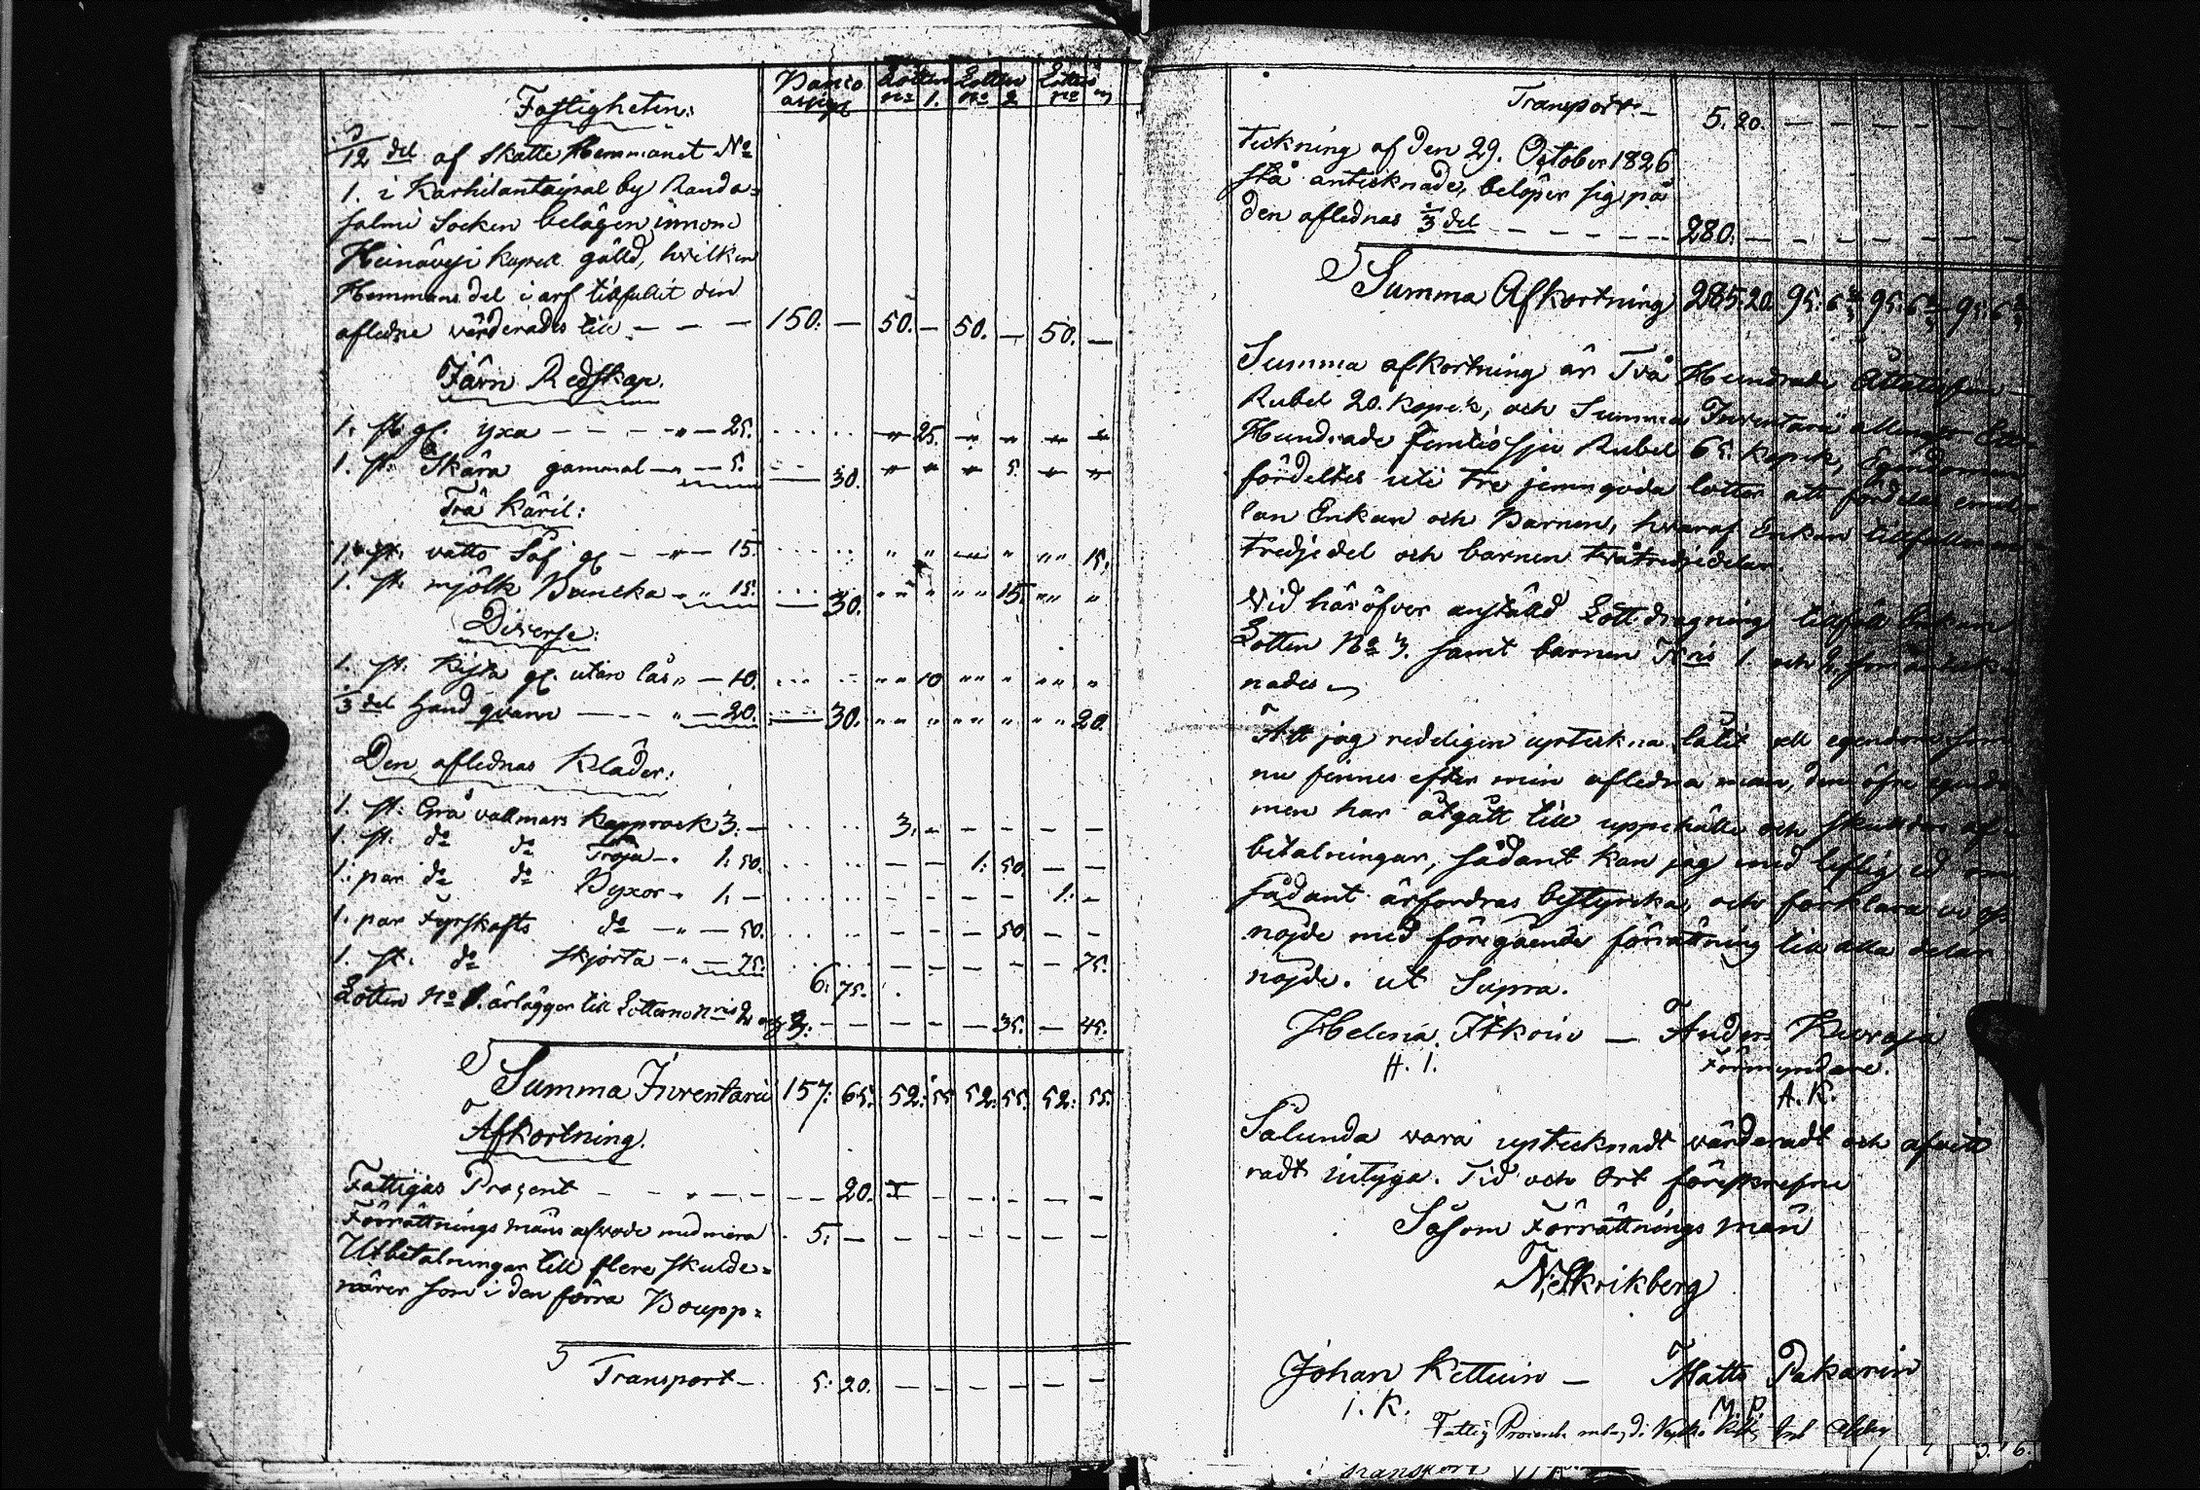 Banco assign
Lotten No 1.
Lotten No 2
Lotten No 3
Fastigheten:
/12 del af Skatte Hemmanet No
1. i Karhilantaipal by Randa=
salmi Socken belägen innom
Heinävesi kapell gälld, hvilken
Hemmans del i arf tilfallit den
afledne värderades till — — — 150: — 50. — 50. — 50. —
Järn Redskap.
1. st. gl. yxa — — — " — 25. " 25. " " " "
1. st. Skära gammal — " — 5. — 30. " " " 5. " "
Trä Käril:
1. st. vatto Så gl — " — 15. " " " " " 15.
1. st. mjölk Buncka " " 15. — 30. " " " 15. " "
Diverse:
1. st. Kista gl. utan lås " — 10. " 10 " " " "
1/3 del Hand qvarn — — " — 20. — 30. " " " " " 20.
Den aflednas Kläder:
1. st: Grå vallmars Kapprock 3. — 3. — — — — —
1. st. do do Tröja — 1. 50. — — 1: 50. — —
1. par do do Byxor — 1. — — — — — 1: —
1. par Fyrskafts do — " — 50. — — — 50. — —
1. st. do skjorta — " — 75. 6. 75. — — — — — 75.
Lotten No 1. ärlägger till Lotterne Nris 2 och 3: — — — — — 35. — 45.
Summa Inventarii 157: 65. 52: 55 52: 55. 52: 55.
Afkortning.
Fattigas Procent — — " — — — 20. — — — — —
Förrättnings mäns arfvode med mera 5. — — — — — — —
Utbetalningar till flere skulde=
närer som i den förra Boupp=
Transport — 5: 20. — — — — — —
Transport. — 5. 20. — — — — — —
teckning af den 29. October 1826
stå antecknade, belöper sig på
den aflednas 1/3 del — — — — — — 280. — — — — — — —
Summa Afkortning 285. 20. 95. 6 2/3 95. 6 2/3 95. 6 2/3
Summa afkortning är Två Hundrade Åttatifem
Rubel 20. kopek, och Summa Inventarii
Hundrade Femtio sju Rubel 65. kopek, Egendomen
fördeltes uti tre jemngoda lotter att fördelas emel-
lan Enkan och Barnen, hvaraf Enkan tillfaller en
tredjedel och barnen tvåtredjedelar.
Vid häröfver anställd Lottdragning tillföll Enkan
Lotten No 3. samt barnen Nris 1. och 2.
nades
Att jag redeligen upteckna låtit all egendom som
nu finnes efter min afledna man, den öfre egendo
men har åtgått till uppehälle och skulders af-
betalningar, sådant kan jag med liflig ed om
sådant ärfordras bestyrka, och förklara vi oss
nöjde med föregående förrättning till alla delar
nöjde. ut Supra.
Helena Itkoin — Anders Kuroja
H. I. Förmyndare.
A. K.
Sålunda vara uptecknadt värderadt och afvitt
radt intyga. Tid och Ort föreskrefne
Såsom Förrättnings män
N. Skrikberg
Johan Kettuin — Matts Pakarin
I. K. M. P.
Fattig Procent
Transport